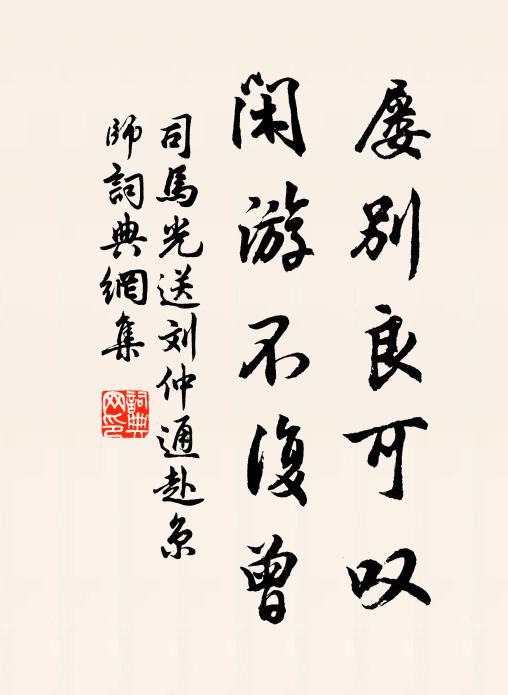 屡别良可叹
闲游不復曾
司馬光送刘仲通赴京
師詞典網集
詞典
网印